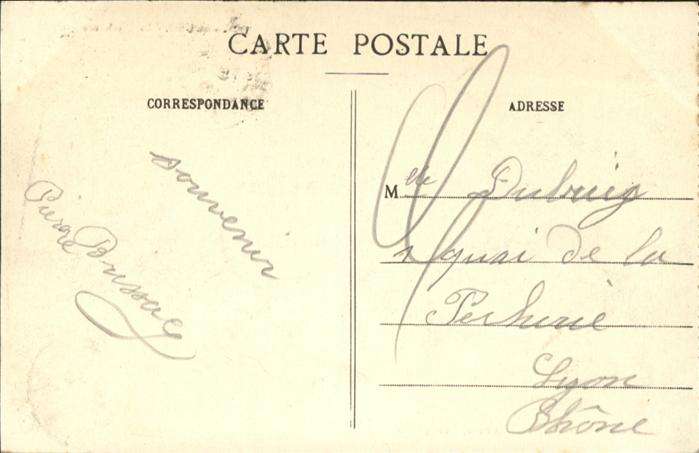 CARTE POSTALE
CORRESPONDANCE
souvenir
Pierre Brissac
ADRESSE
Mlle Dubuig
1 quai de la
Pecherie
Lyon
Rhône